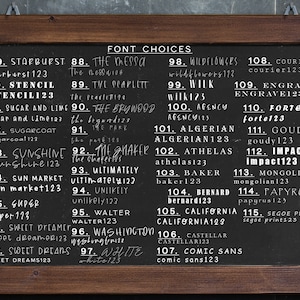 FONT CHOICES
STARBURST
arburst123
STENCIL
TENCIL123
SUGAR AND LIME
ar and lime123
SUGARCOAT
arcoat123
SUNSHINE
nshine123
SUN MARKET
n market123
SUPER
per123
SWEET DREAMER
et dreamer123
SWEET DREAMS
EET DREAMS123
88. THE MESSA
89. THE SCARLETT
the scarlett123
90. THE BRYWOOD
the brywood123
91.
92. THE SHAKER
93. ULTIMATELY
ultimately123
94. UNLIKELY
unlikely123
95. WALTER
WALTER123
96. WASHINGTON
washington123
97. WHITE
white123
98. WILDFLOWERS
wildflowers123
99. WILK
wilk123
100. AGENCY
AGENCY123
101. ALGERIAN
ALGERIAN123
102. ATHELAS
athelas123
103. BAKER
baker123
104. BERNARD
bernard123
105. CALIFORNIA
CALIFORNIA123
106. CASTELLAR
CASTELLAR123
107. COMIC SANS
comic sans123
108. COURI
courier123
109. ENGRA
ENGRAVE123
110. FORTE
forte123
111. GOUD
goudy123
112. IMPAC
impact123
113. MONGOL
mongolian
114. PAPYR
papyrus1
115. SEGOE P
segoe print1